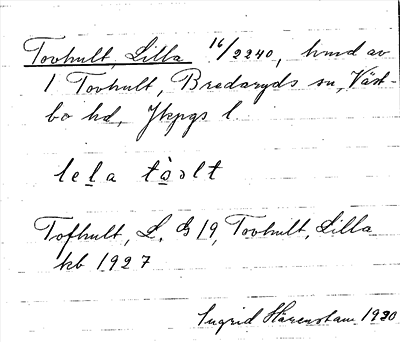 Tovhult, Lilla 16/2240, hmd av
1 Tovhult, Bredaryds sn, Väst-
bo hd, Jkpgs l.
lela tòɔlt
Tofhult, L. G 19, Tovhult, Lilla
kb 1927
Ingrid Härenstam 1930